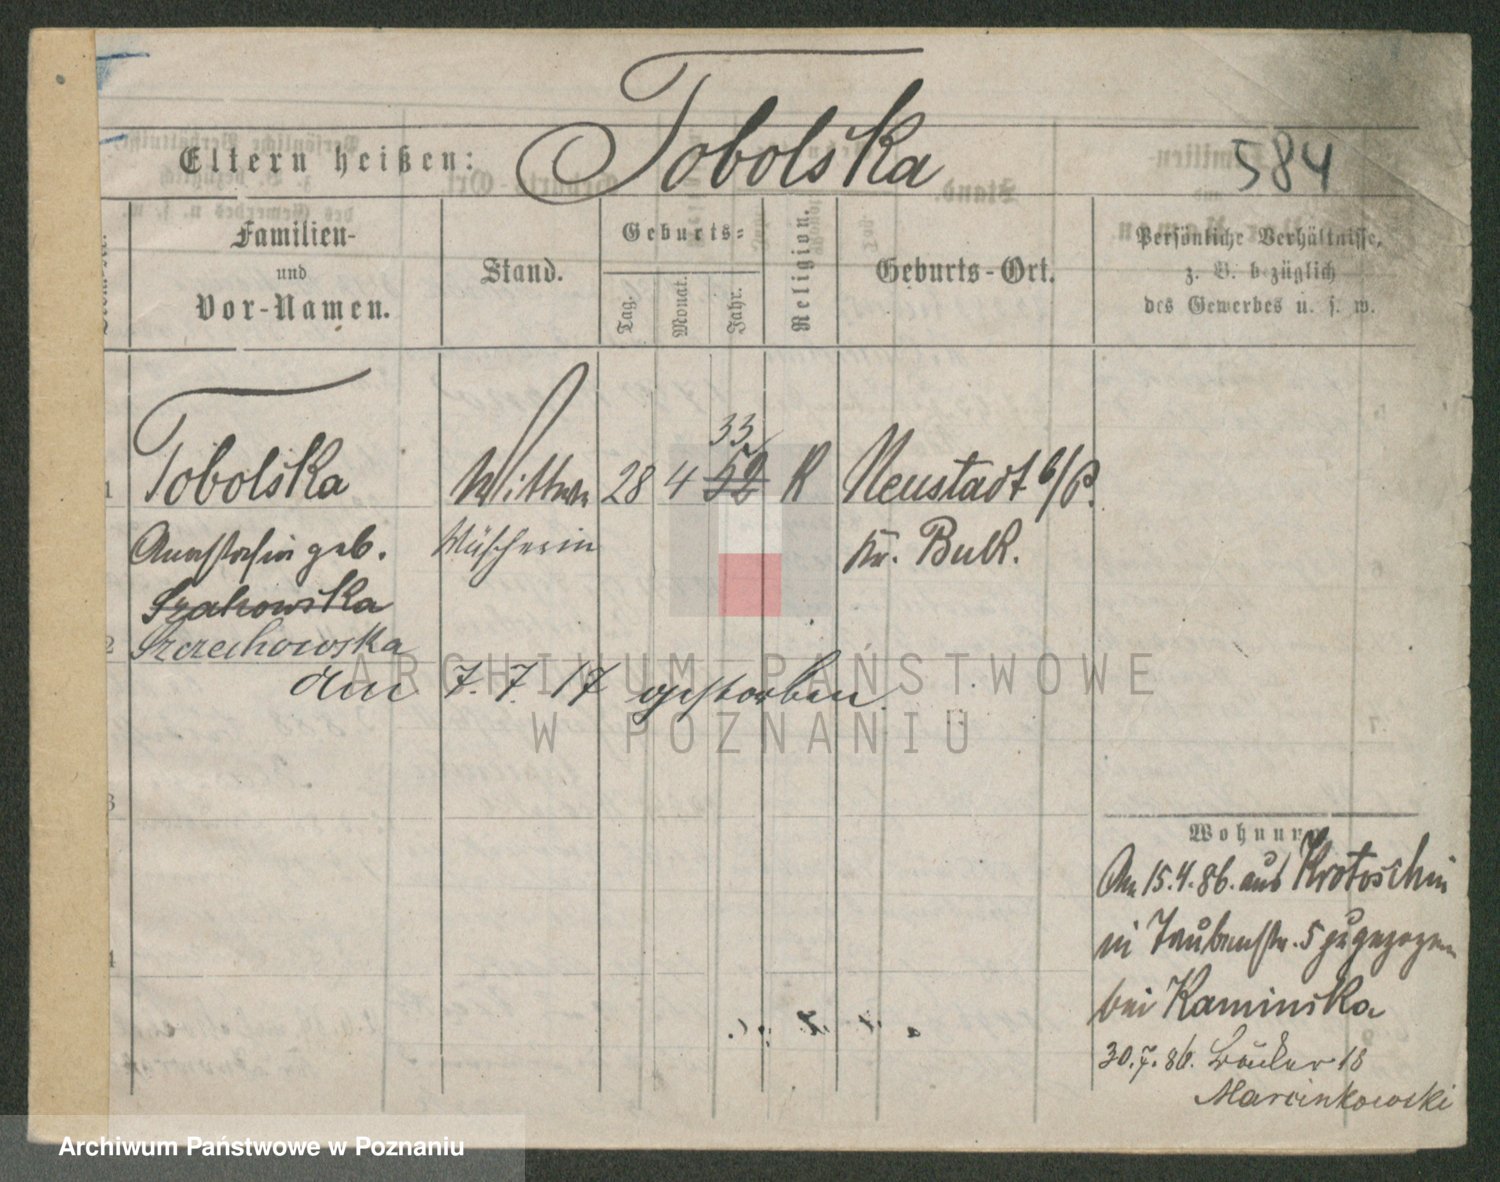 Tobolska
584
Eltern heißen:
Familien-
und
Vor-Namen.
Stand.
Geburts-
Tag.
Monat.
Jahr.
Religion.
Geburts-Ort.
Persönliche Verhältnisse,
z. B. bezüglich
des Gewerbes u. s. w.
1 Tobolska Wittwe 28 4 52 33 K Neustadt b/P.
Anastasia geb. Wäscherin Kr. Buk.
Szakowska
2 Szczechowska
am 7.7.17 gestorben.
3
4
Wohnung
Am 15.4.86. aus Krotoschin
in Taubenstr. 5 zugezogen
bei Kaminska
30.7.86. 18
Marcinkowski
ARCHIWUM PAŃSTWOWE
W POZNANIU
Archiwum Państwowe w Poznaniu